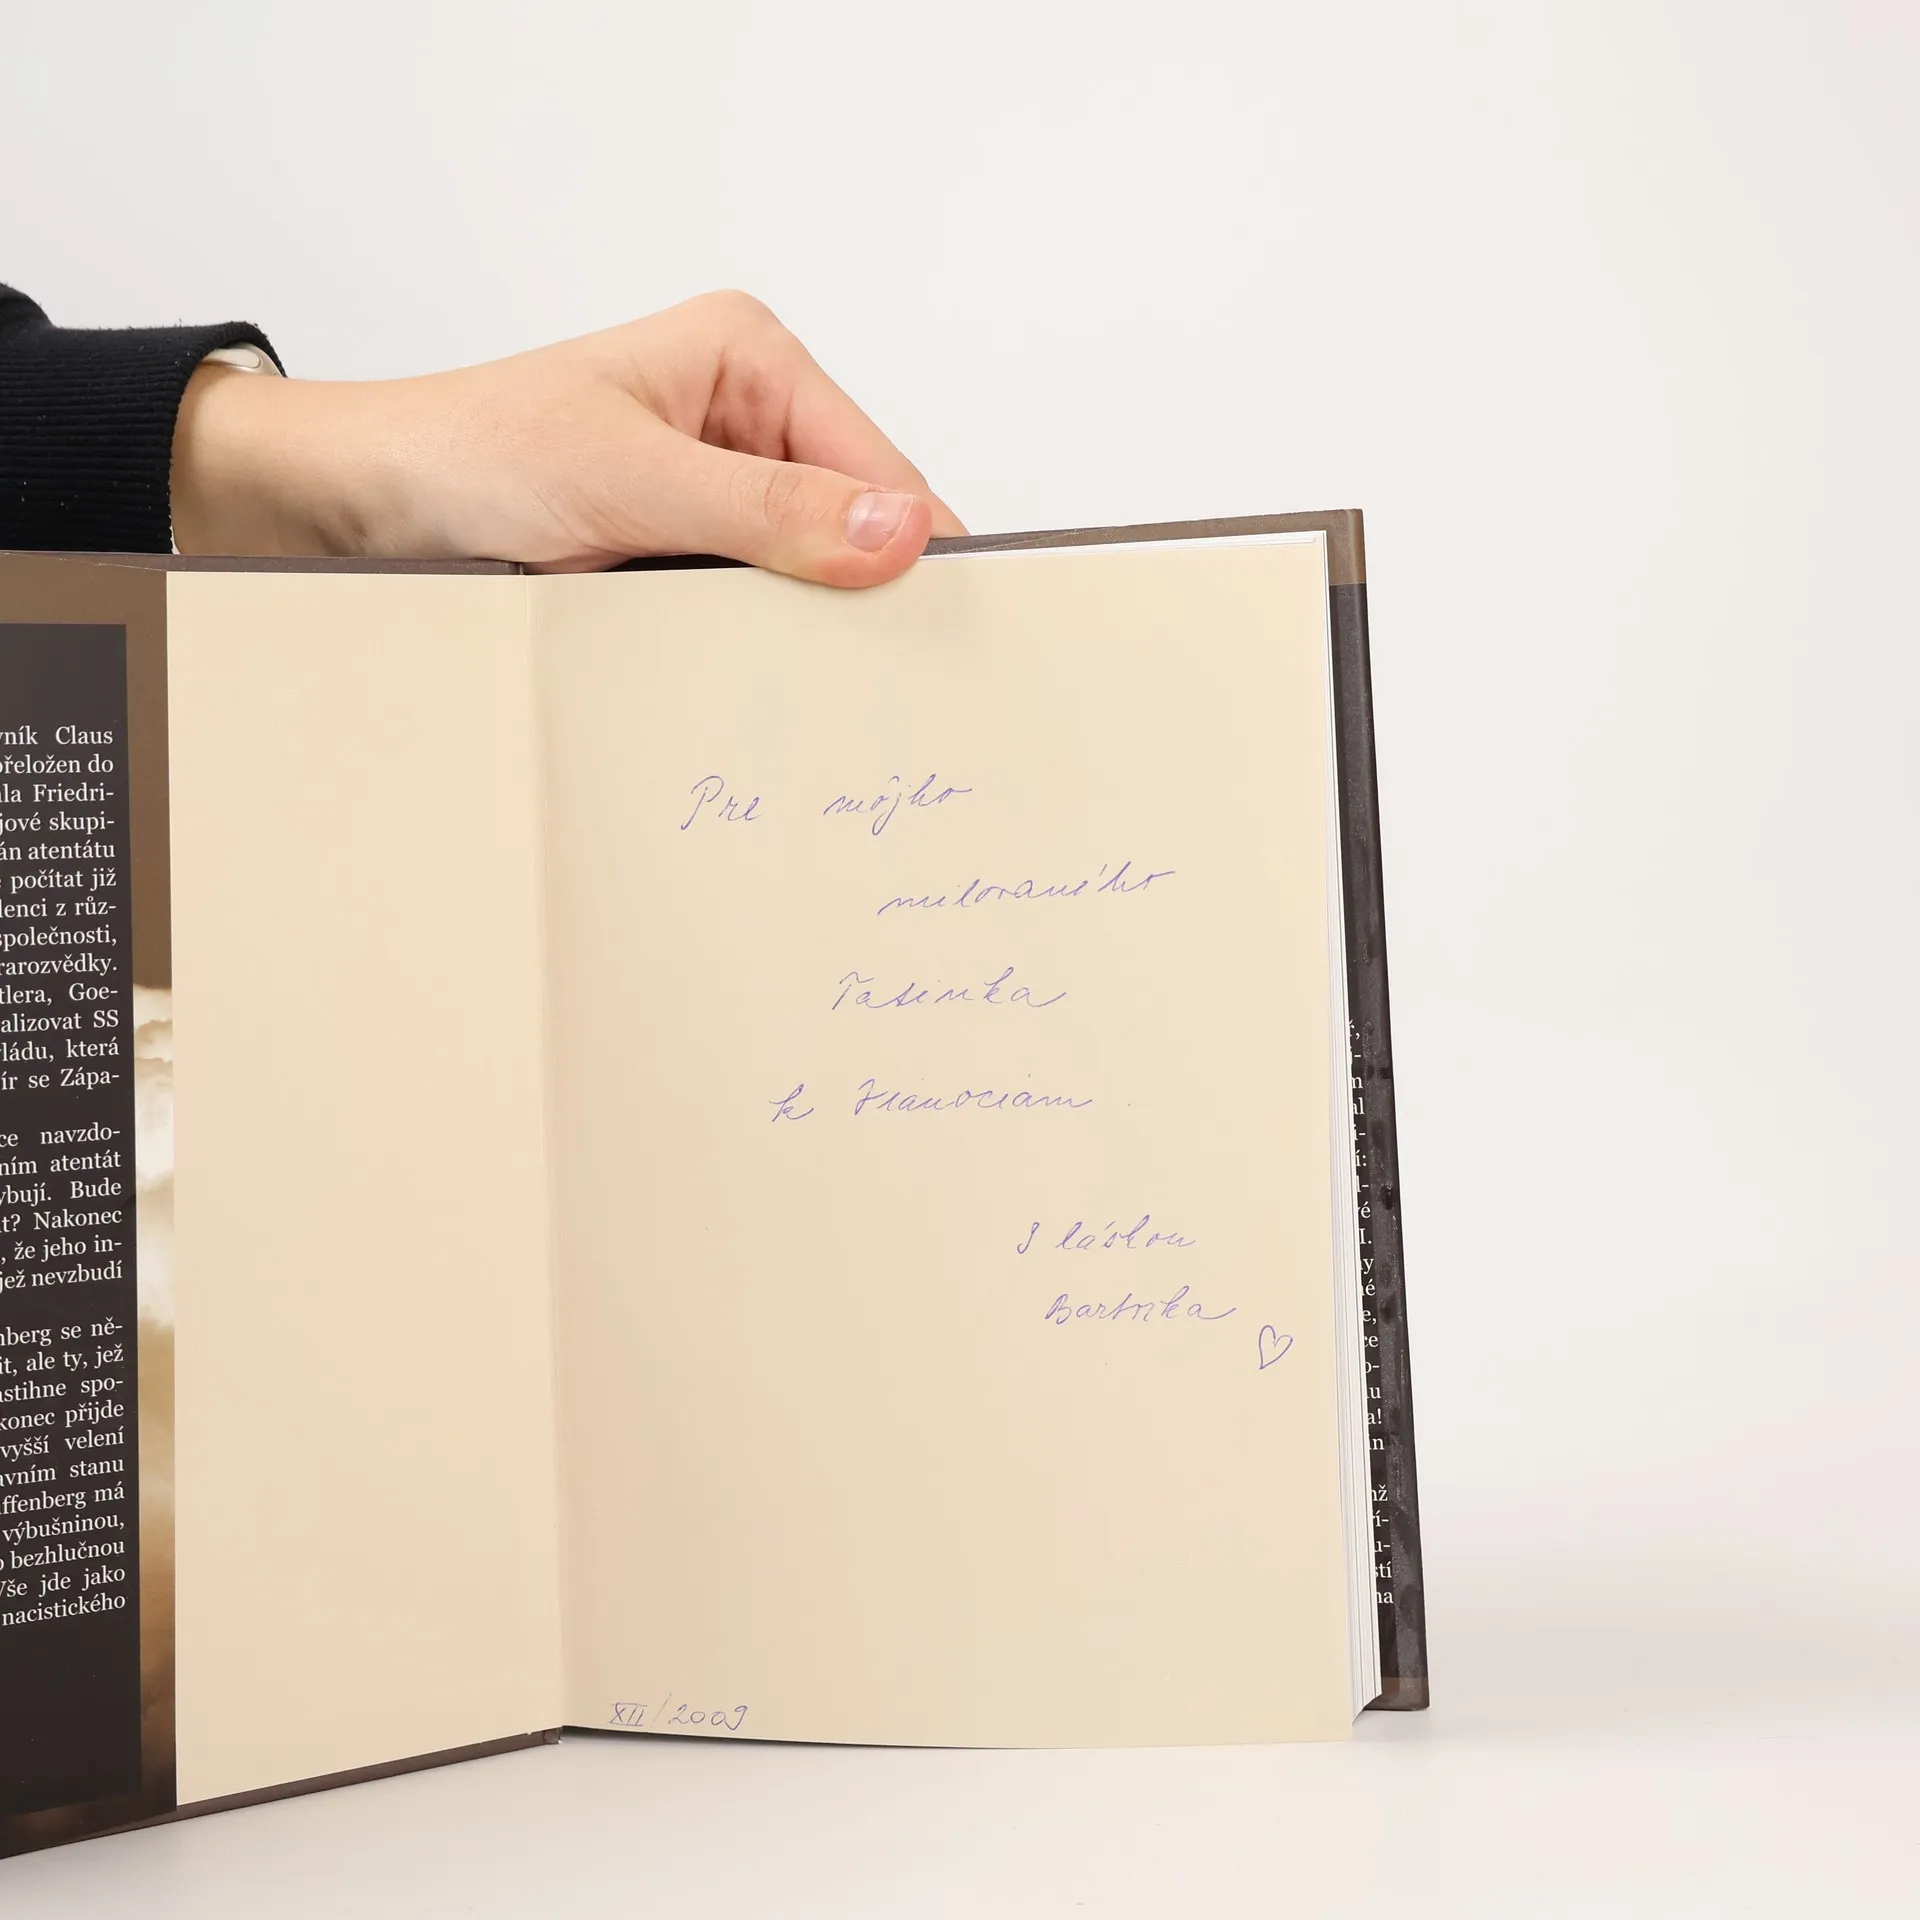 vník Claus
přeložen do
ála Friedri-
jové skupi-
án atentátu
počítat již
lenci z růz-
společnosti,
rarozvědky.
tlera, Goe-
alizovat SS
ládu, která
ír se Zápa-
ce navzdo-
ním atentát
ybují. Bude
t? Nakonec
, že jeho in-
jež nevzbudí
nberg se ně-
it, ale ty, jež
astihne spo-
konec přijde
vyšší velení
avním stanu
uffenberg má
výbušninou,
o bezhlučnou
Vše jde jako
nacistického
Pre môjho
milovaného
Tatinka
k Vianociam
S láskou
XII/2009